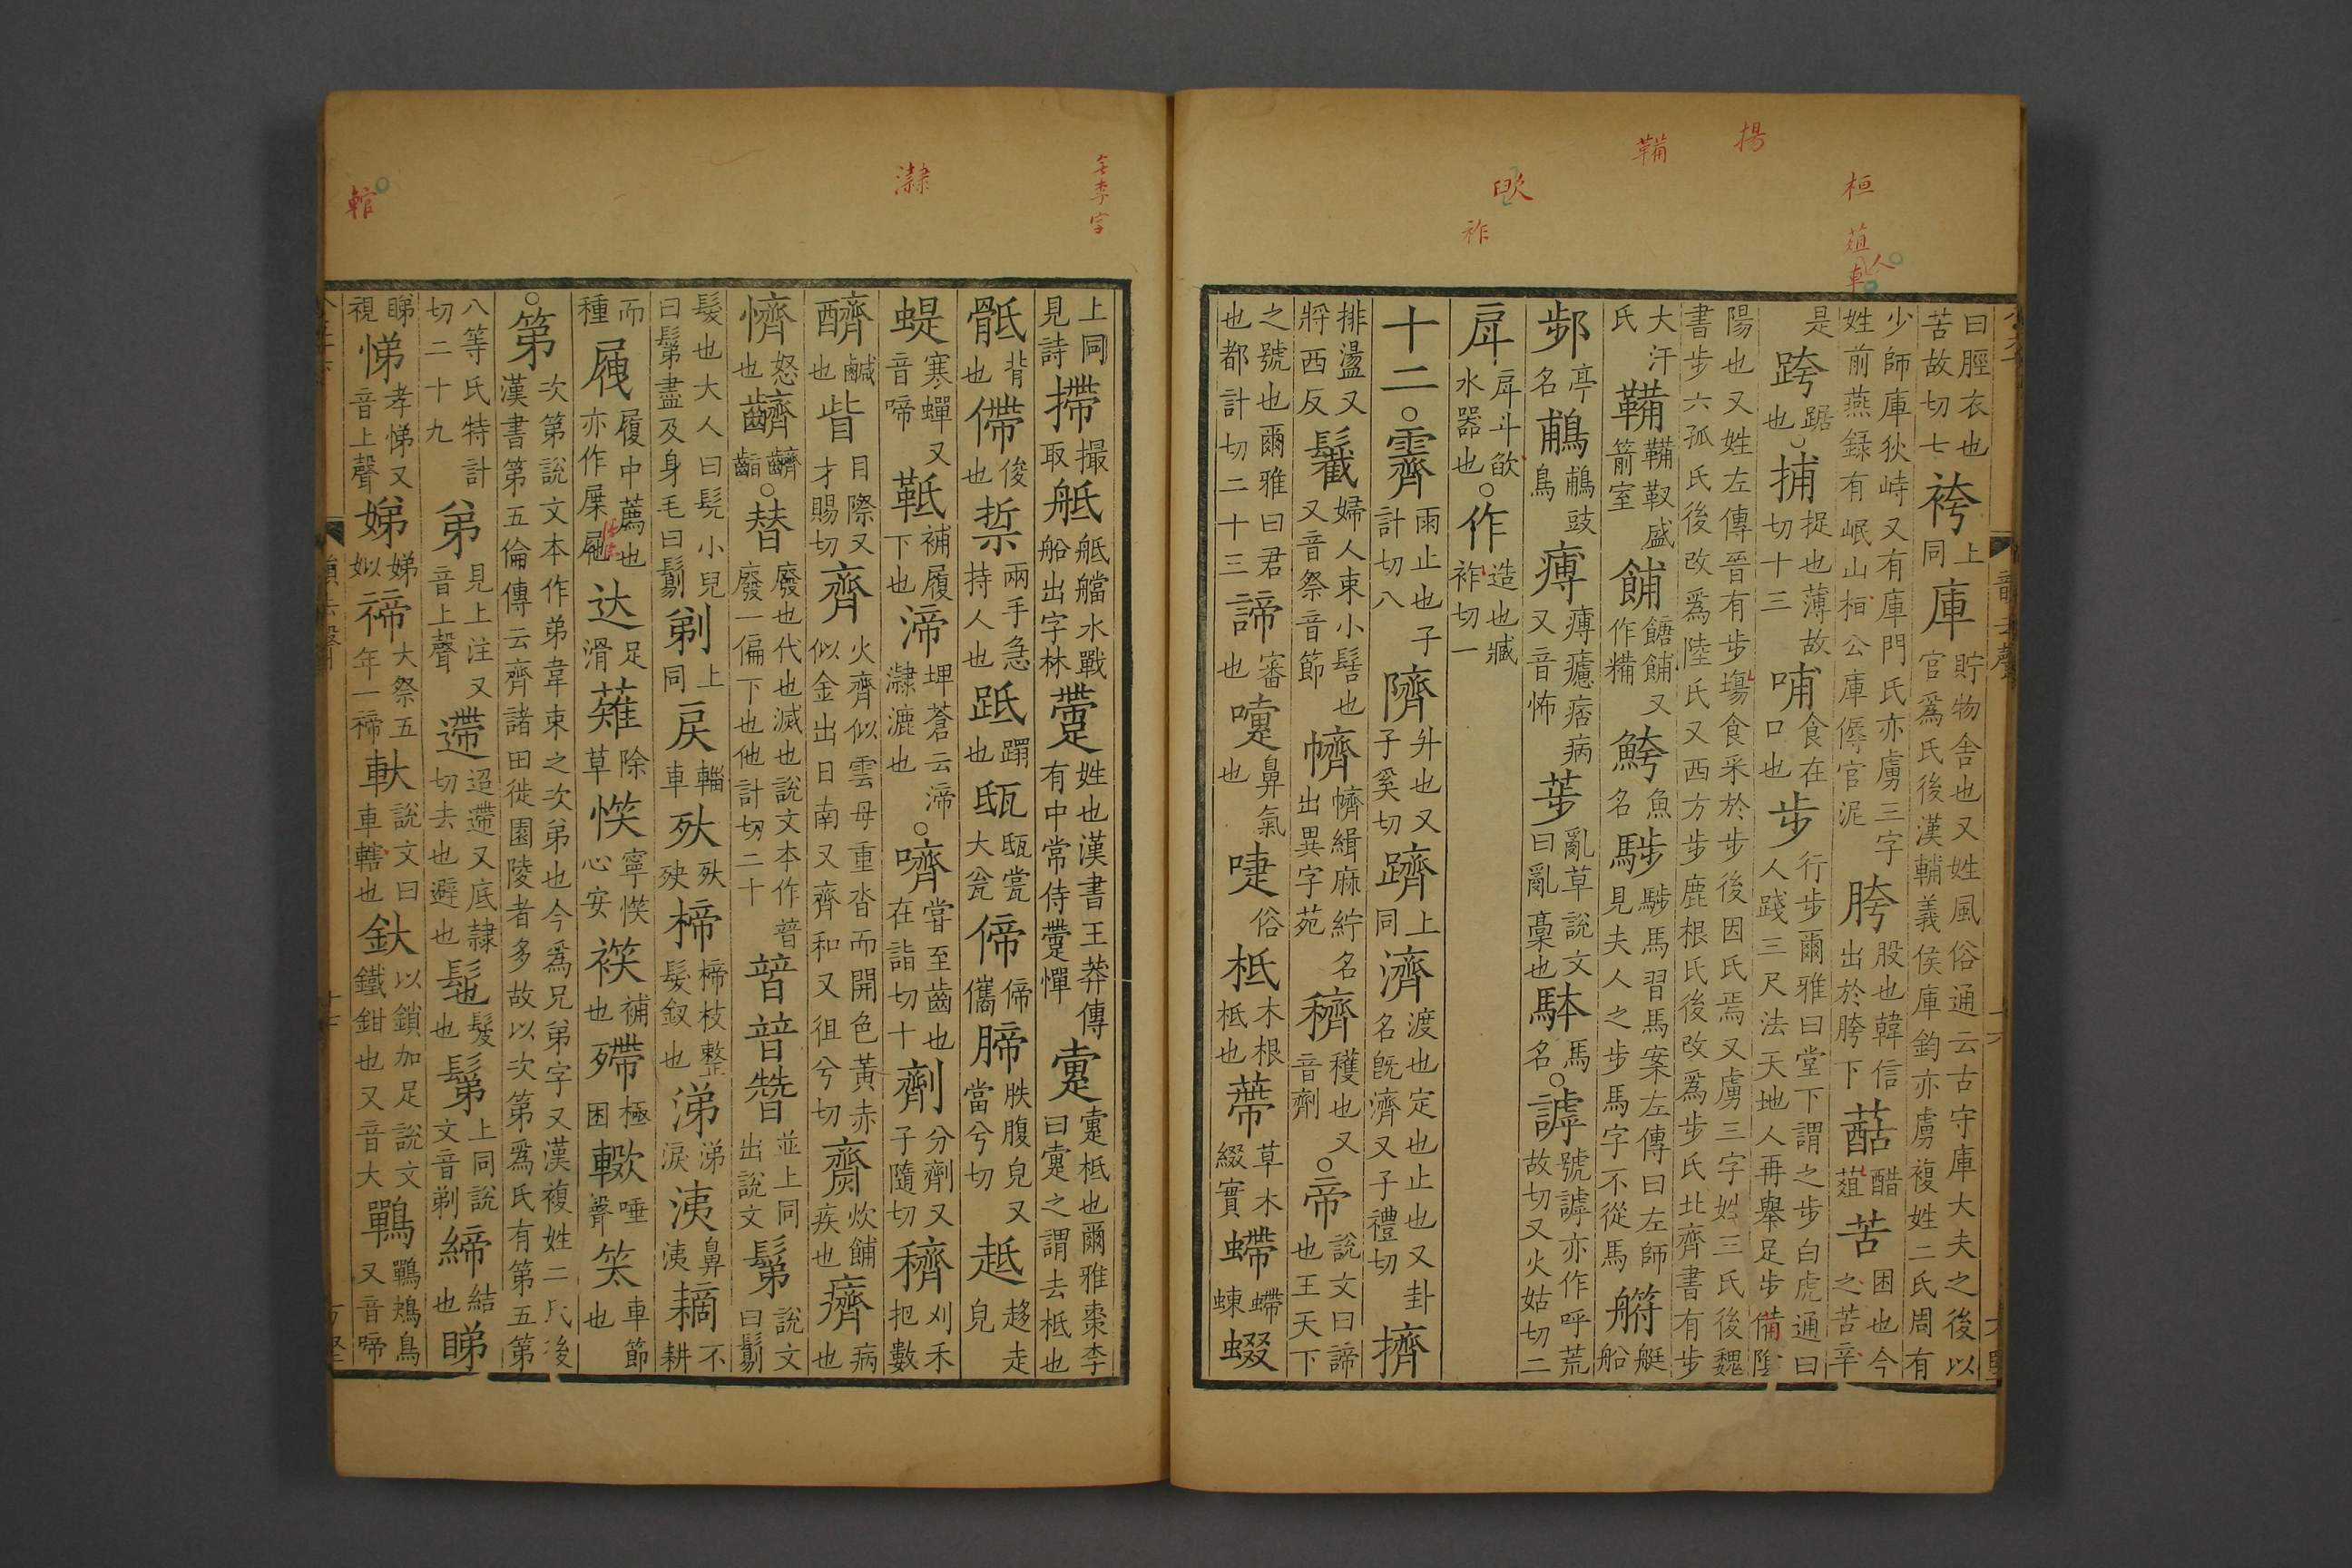 揚
鞴
桓
葅
人
車
歐
祚
曰脛衣也苦故切七袴上同庫貯物舍也又姓風俗通云古守庫大夫之後以官爲氏後漢輔義侯庫鈞亦虜複姓二氏周有
少師庫狄峙又有庫門氏亦虜三字姓前燕録有岷山桓公庫傉官泥胯股也韓信出於胯下䔯醋葅苦困也今之苦辛
是跨踞也○捕捉也薄故切十三哺食在口也步行步爾雅曰堂下謂之步白虎通曰人踐三尺法天地人再舉足步備陰
陽也又姓左傳晉有步塲食采於步後因氏焉又虜三字姓三氏後魏書步六孤氏後改爲陸氏又西方步鹿根氏後改爲步氏北齊書有步
大汗氏鞴鞴靫盛箭室餔餹餔又作䊇魚名䮌䮌馬習馬案左傳曰左師見夫人之步馬字不從馬艇船
亭名鵏鵏䳁鳥㾭㾭癔痞病又音怖荹亂草說文曰亂藁也馬名○謼號謼亦作呼荒故切又火姑切二
戽戽斗㰤水器也○作造也臧祚切一
十二○霽雨止也子計切八隮升也又子奚切躋上同濟渡也定也止也又卦名旣濟又子禮切擠
排盪又將西反婦人束小髻也又音祭音節緝麻紵名出異字苑穧穫也又音劑○帝說文曰諦也王天下
之號也爾雅曰君也都計切二十三諦審也嚏鼻氣也啑俗柢木根柢也蔕草木綴實螮螮蝀蝃
無李字
灖
輨
上同見詩摕撮取水戰船出字林姓也漢書王莽傳有中常侍憚疐疐柢也爾雅棗李曰疐之謂去柢也
骶背也僀俊也狾兩手急持人也蹛也㼵㼵甇大瓮偙偙儶腣胅腹皃又當兮切趆趍走皃
蝭寒蟬又音啼䩚補履下也渧埤蒼云渧灖漉也○嚌嘗至齒也在詣切十劑分劑又子隨切穧刈禾把數
醂鹹也眥目際又才賜切齊火齊似雲母重沓而開色黃赤似金出日南又齊和又徂兮切齌炊餔疾也癠病也
懠怒也齏齧○替廢也代也滅也說文本作暜廢一偏下也他計切二十暜朁並上同出說文鬄說文曰鬄
髮也大人曰髡小兒曰鬄盡及身毛曰鬄剃上同戾車輜㱦㱦殜楴楴枝整髮釵也涕涕淚洟鼻洟䄟不耕
而種屜履中薦也亦作屟屉达足滑薙除草㥦寧㥦心安補也殢極困唾聲笑車節也
○第次第說文本作弟韋束之次弟也今爲兄弟字又漢複姓二氏後漢書第五倫傳云齊諸田徙園陵者多故以次第爲氏有第五第
八等氏特計切二十九弟見上注又音上聲遰迢遰又底隸切去也避也髢髮也鬄上同說文音剃締結也睇
睇視悌孝悌又音上聲娣娣姒禘大祭五年一禘軑說文曰車轄也釱以鎖加足說文鐵鉗也又音大鷤鷤鴂鳥又音啼